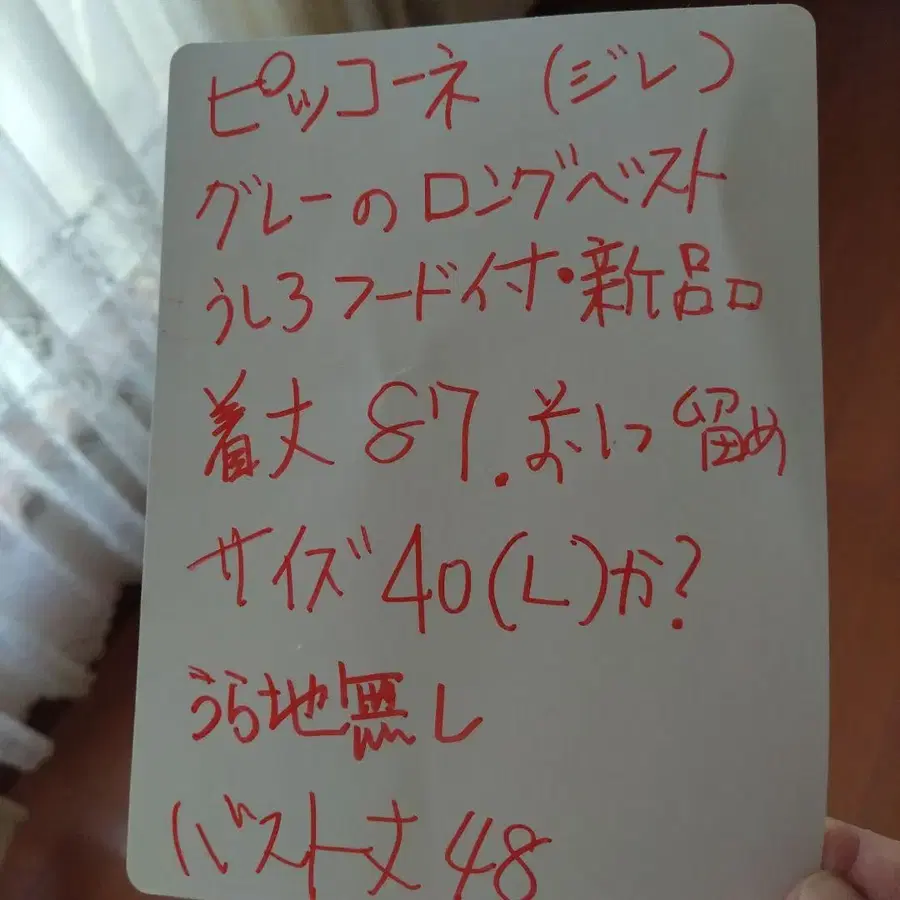 ピッコーネ (ジレ)
グレーのロングベスト
うしろフード付・新品
着丈 87. 留め
サイズ 40(L)か?
うら地無し
バスト丈 48